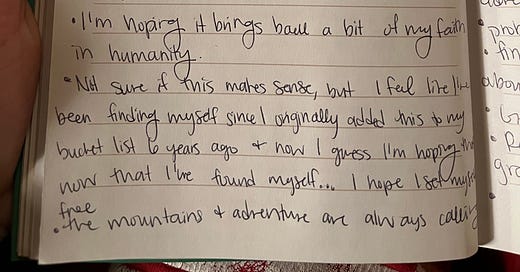 • I'm hoping it brings back a bit of my faith
in humanity.
• Not sure if this makes sense, but I feel like I've
been finding myself since I originally added this to my
bucket list 6 years ago + now I guess I'm hoping
now that I've found myself... I hope I set myself
free
• the mountains + adventure are always calling